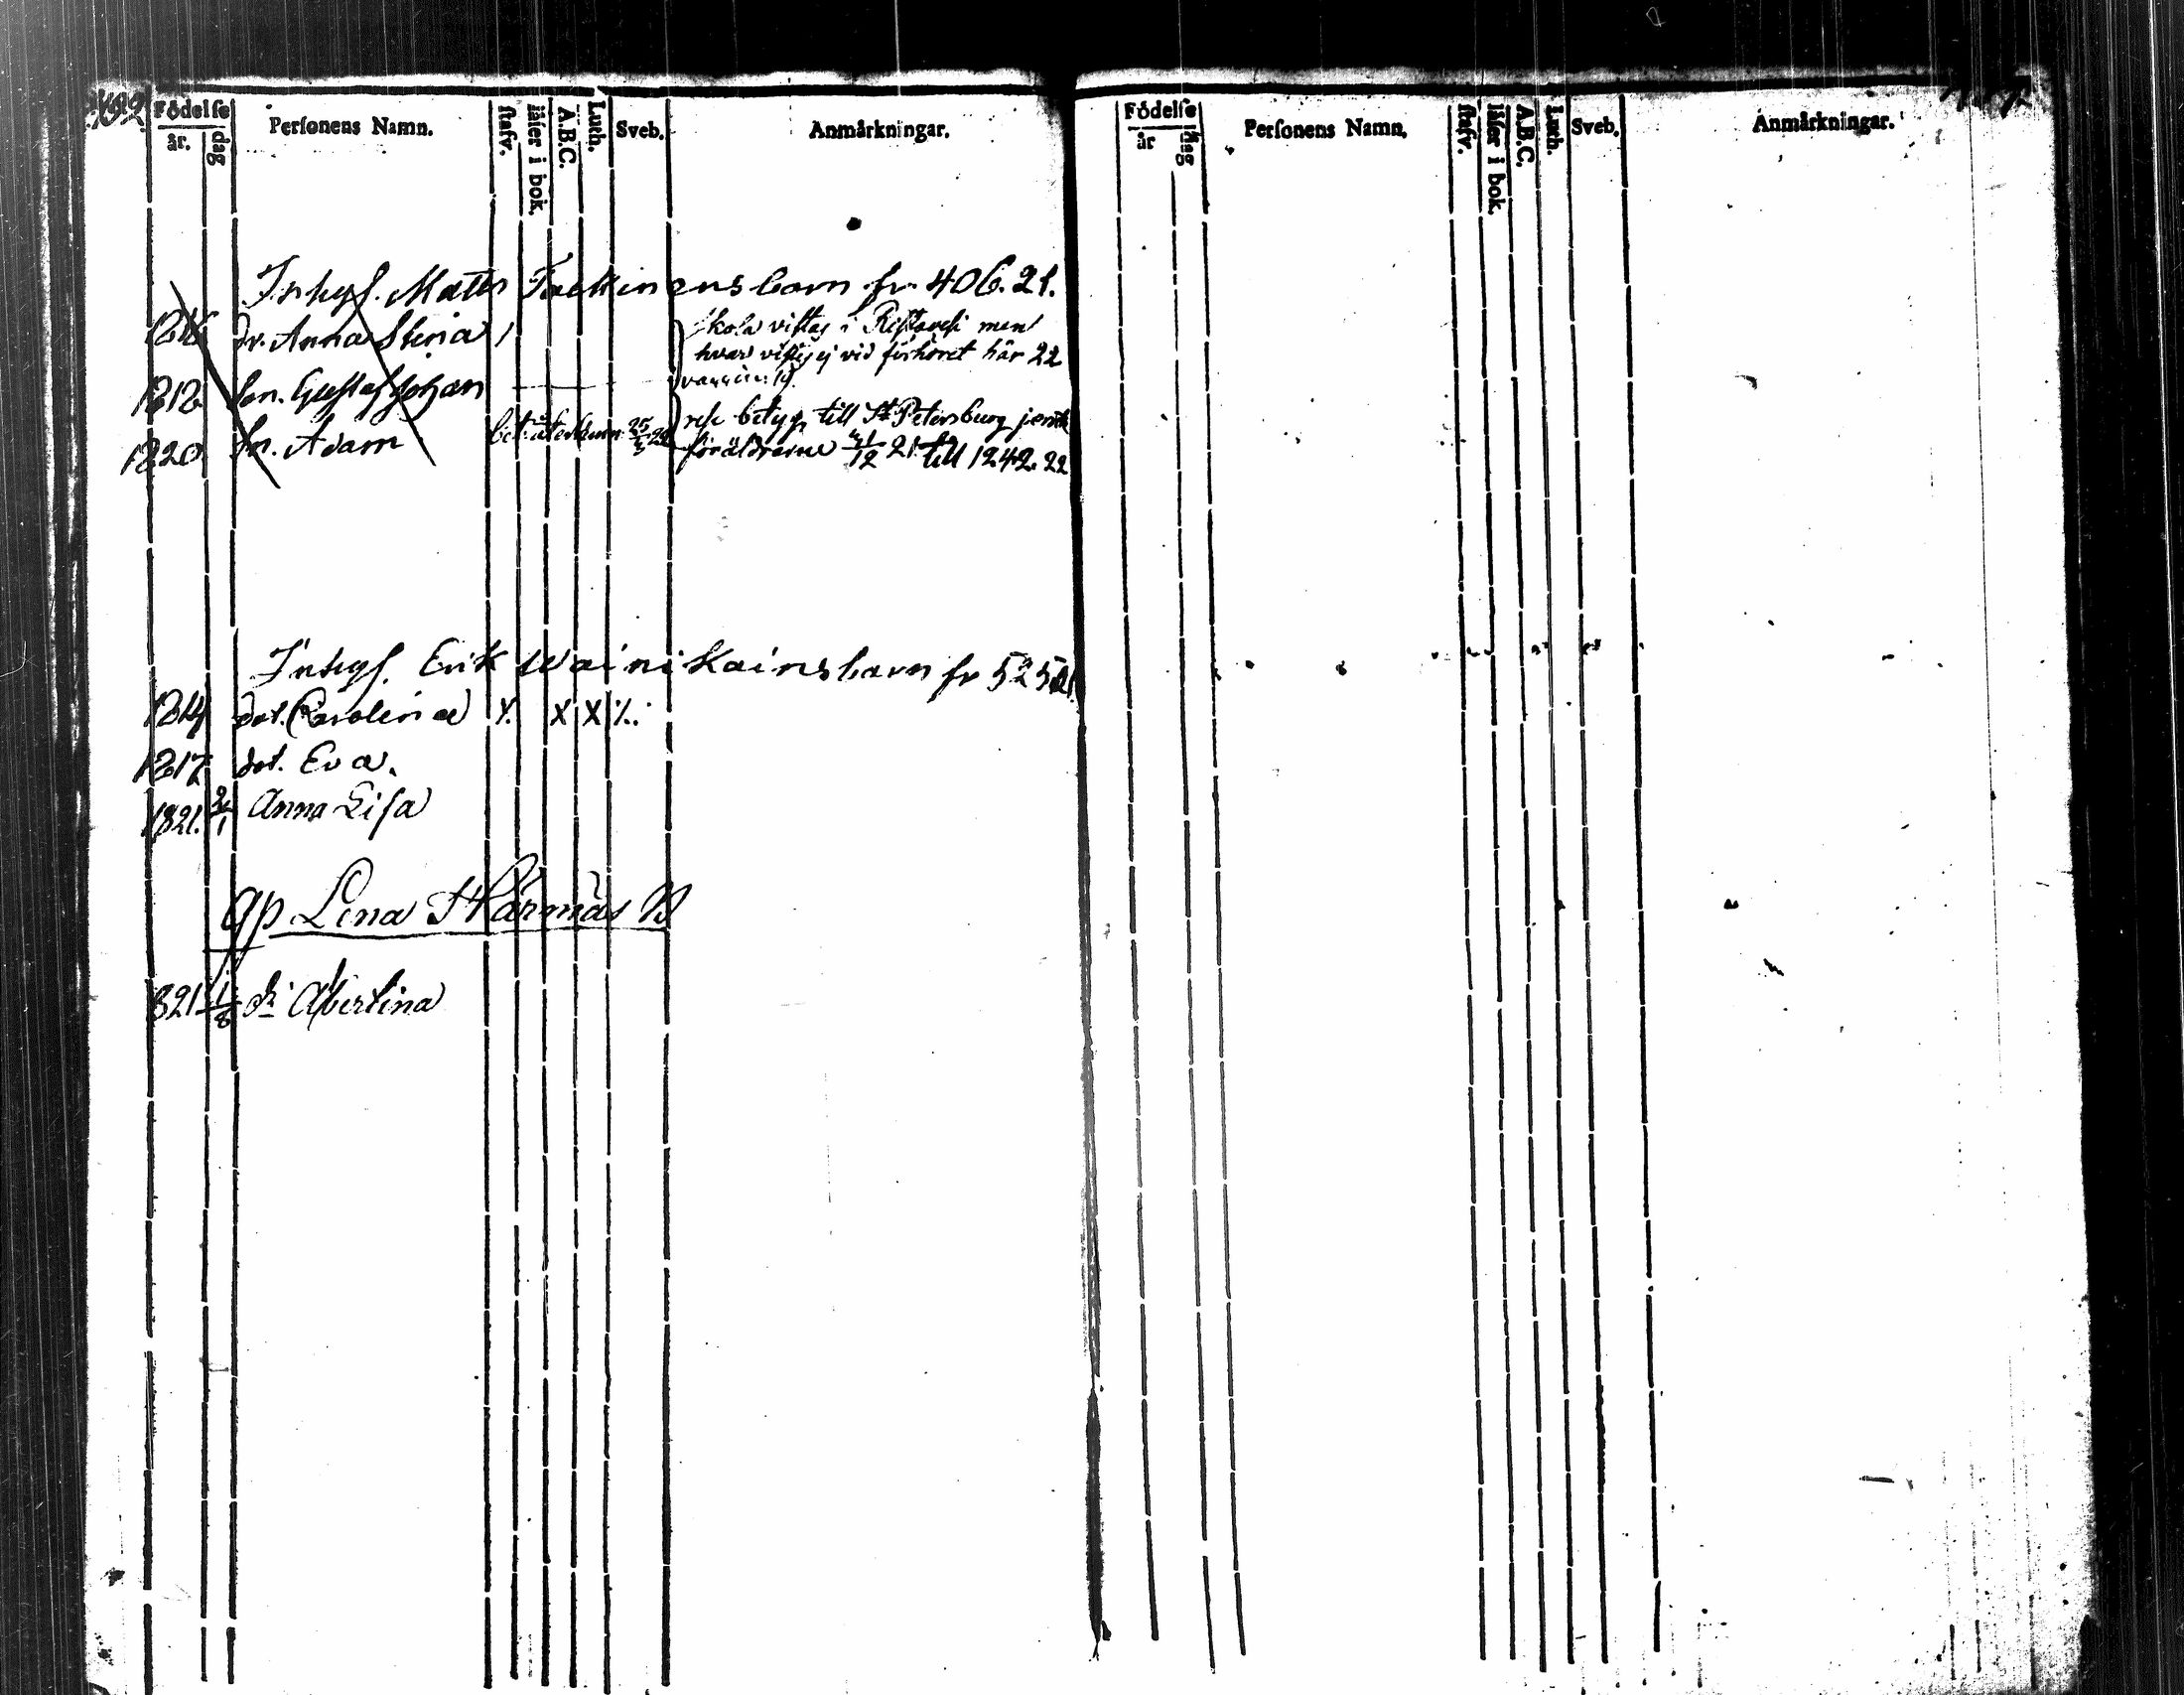 Födelse Personens Namn. stafv. läser i bok. A.B.C. Luth. Sveb. Anmärkningar.
år. dag
Inhys. Matts Tackinens barn fr. 406. 21.
dr. Anna Stina
skola vistas i Ristavesi men
hvar vistes ej vid förhöret här 22
1812 Son. Gustaf Johan
1820 Sn. Adam bet. återkom 25/3 22
rese betyg till St Petersburg jemte
föräldrarne 21 till 1242. 22
Inhys. Erik Wainikainsbarn fr 525
1814 dot. Carolina X X X
1817 dot. Eva.
1821. Anna Lisa
gp Lena Härmäs B
821 1/8 dr Albertina
Födelse Personens Namn, stafv. läser i bok. A.B.C. Luth. Sveb. Anmärkningar.
år dag